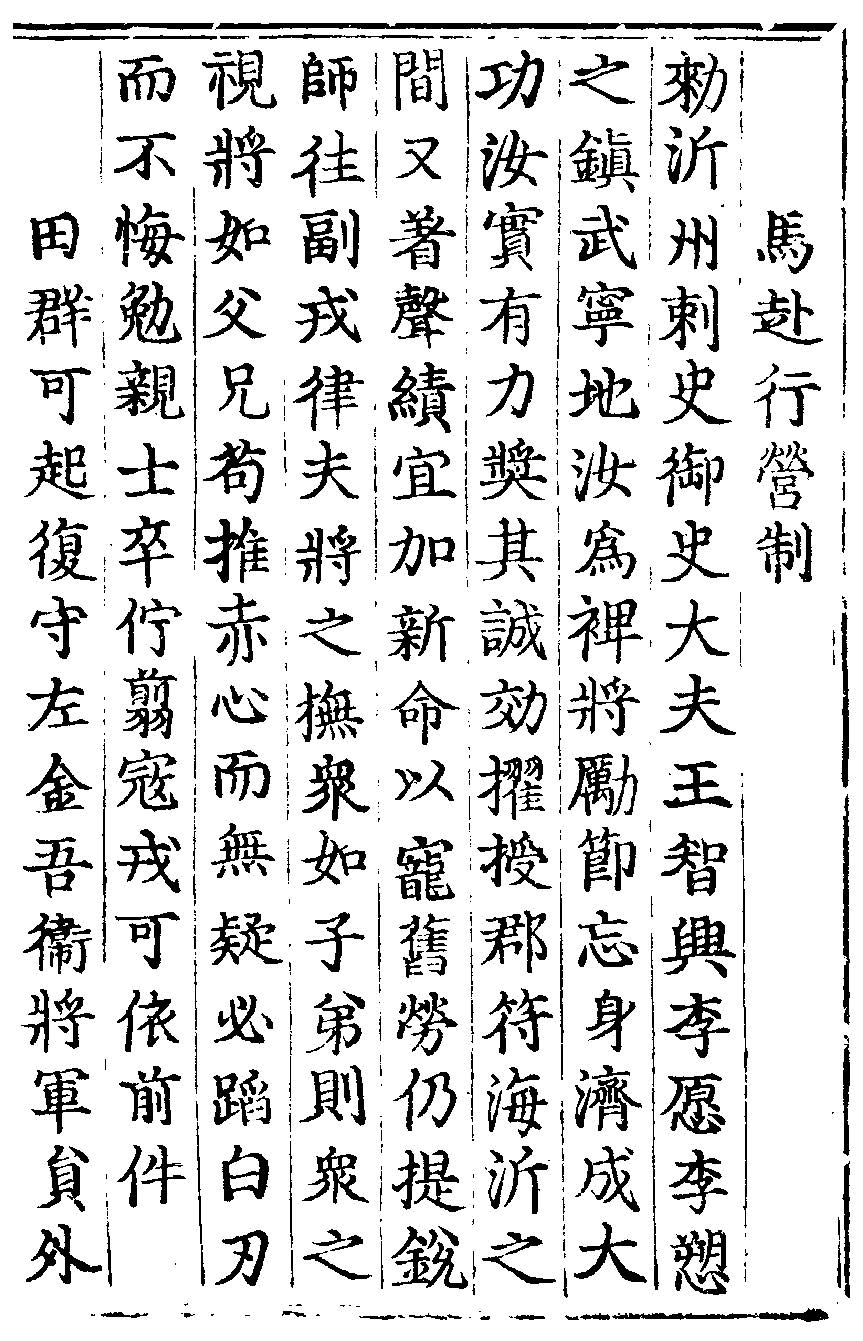 馬赴行營制
勑沂州刺史御史大夫王智興李愿李愬
之鎮武寧地汝爲裨將勵節忘身濟成大
功汝實有力奬其誠効擢授郡符海沂之
間又著聲績宜加新命以寵舊勞仍提銳
師徃副戎律夫將之撫衆如子弟則衆之
視將如父兄苟推赤心而無疑必蹈白刃
而不悔勉親士卒佇翦寇戎可依前件
田群可起復守左金吾衞將軍負外